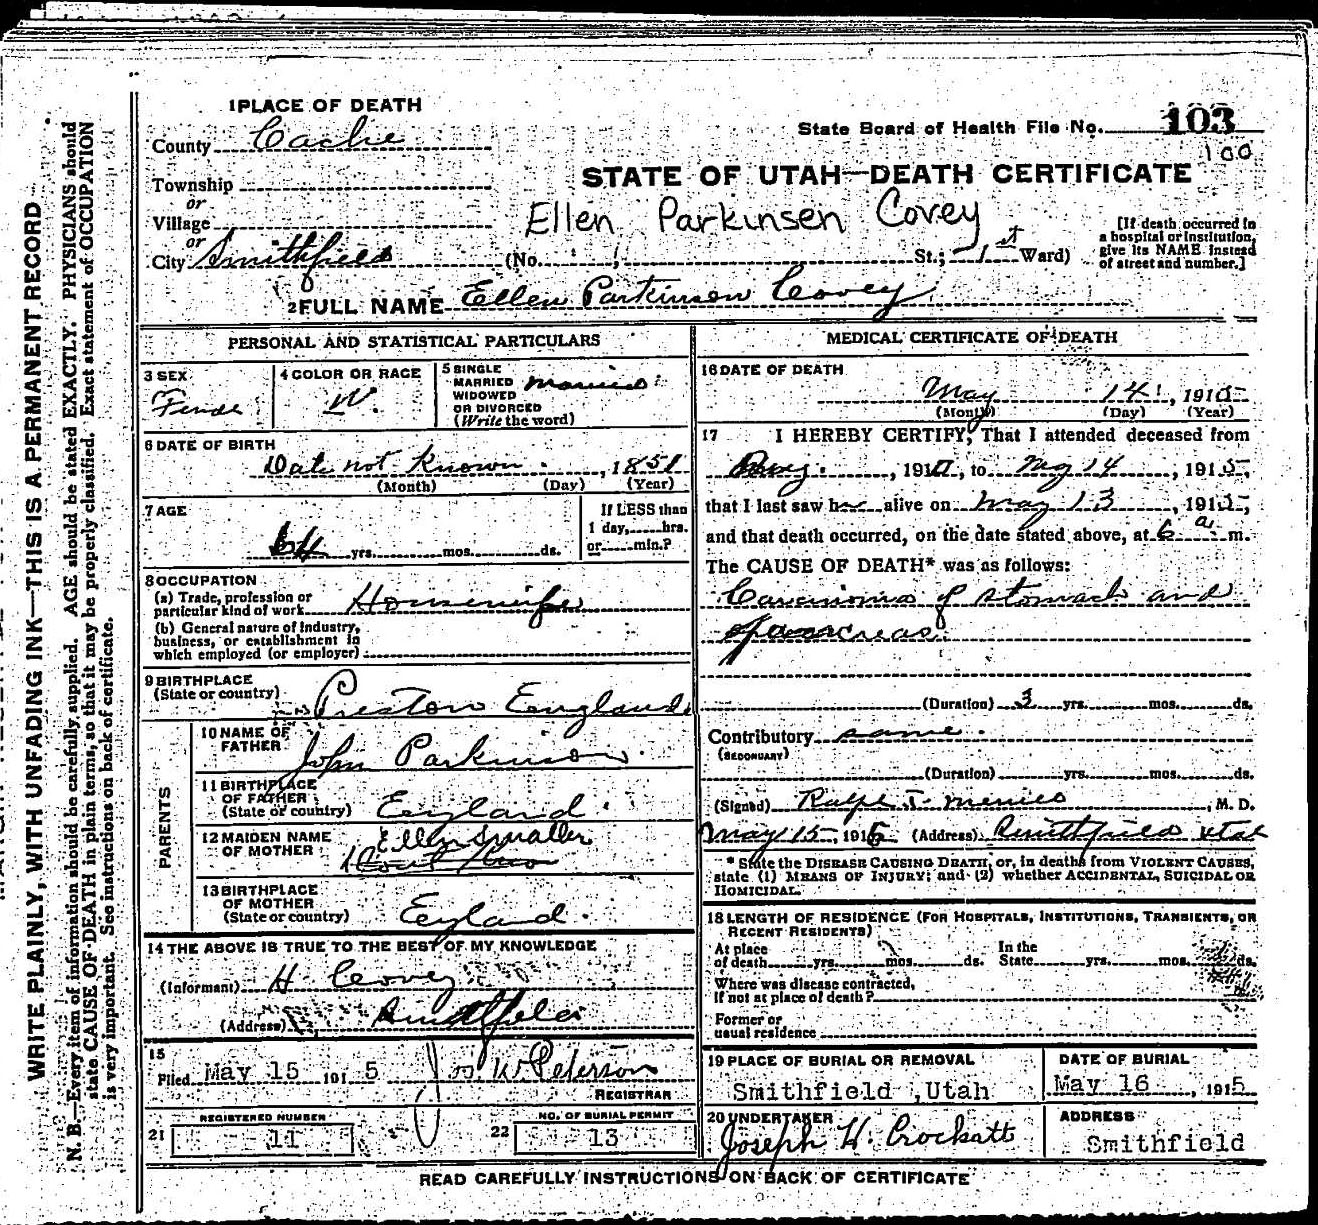 1 PLACE OF DEATH
County Cache
State Board of Health File No. 103
100
Township
or
Village
or
City Smithfield
STATE OF UTAH—DEATH CERTIFICATE
Ellen Parkinsen Covey
(No. St.; 1st Ward)
[If death occurred in
a hospital or institution,
give its NAME instead
of street and number.]
2 FULL NAME Ellen Parkinsen Covey
PERSONAL AND STATISTICAL PARTICULARS
3 SEX
4 COLOR OR RACE
W.
5 SINGLE
MARRIED
WIDOWED
OR DIVORCED
(Write the word)
Married
6 DATE OF BIRTH
Date not Known, 1851
(Month) (Day) (Year)
7 AGE
64 yrs. mos. ds.
If LESS than
1 day, hrs.
or min.?
8 OCCUPATION
(a) Trade, profession or
particular kind of work Housewife
(b) General nature of industry,
business, or establishment in
which employed (or employer)
9 BIRTHPLACE
(State or country) Preston England
PARENTS
10 NAME OF
FATHER
John Parkinson
11 BIRTHPLACE
OF FATHER
(State or country) England
12 MAIDEN NAME
OF MOTHER
Ellen Smaller
13 BIRTHPLACE
OF MOTHER
(State or country) England.
14 THE ABOVE IS TRUE TO THE BEST OF MY KNOWLEDGE
(Informant) H Covey
(Address) Smithfield
15
Filed May 15 191 5
W Peterson
REGISTRAR
21 REGISTERED NUMBER
11
22 NO. OF BURIAL PERMIT
13
MEDICAL CERTIFICATE OF DEATH
16 DATE OF DEATH
May 14, 1915
(Month) (Day) (Year)
17 I HEREBY CERTIFY, That I attended deceased from
, 191 , to May 14, 1915,
that I last saw her alive on May 13, 1915,
and that death occurred, on the date stated above, at 6 a. m.
The CAUSE OF DEATH* was as follows:
Carcinoma of stomach and
pancreas.
(Duration) 3 yrs. mos. ds.
Contributory same.
(SECONDARY)
(Duration) yrs. mos. ds.
(Signed) Ralph T. , M. D.
May 15, 1915 (Address) Smithfield Utah
* State the DISEASE CAUSING DEATH, or, in deaths from VIOLENT CAUSES,
state (1) MEANS OF INJURY; and (2) whether ACCIDENTAL, SUICIDAL OR
HOMICIDAL.
18 LENGTH OF RESIDENCE (FOR HOSPITALS, INSTITUTIONS, TRANSIENTS, OR
RECENT RESIDENTS)
At place
of death yrs. mos. ds.
In the
State yrs. mos. ds.
Where was disease contracted,
if not at place of death?
Former or
usual residence
19 PLACE OF BURIAL OR REMOVAL
Smithfield ,Utah
DATE OF BURIAL
May 16, 1915
20 UNDERTAKER
Joseph H. Crockatt
ADDRESS
Smithfield
READ CAREFULLY INSTRUCTIONS ON BACK OF CERTIFICATE
WRITE PLAINLY, WITH UNFADING INK—THIS IS A PERMANENT RECORD
N. B.—Every item of information should be carefully supplied. AGE should be stated EXACTLY. PHYSICIANS should
state CAUSE OF DEATH in plain terms, so that it may be properly classified. Exact statement of OCCUPATION
is very important. See instructions on back of certificate.